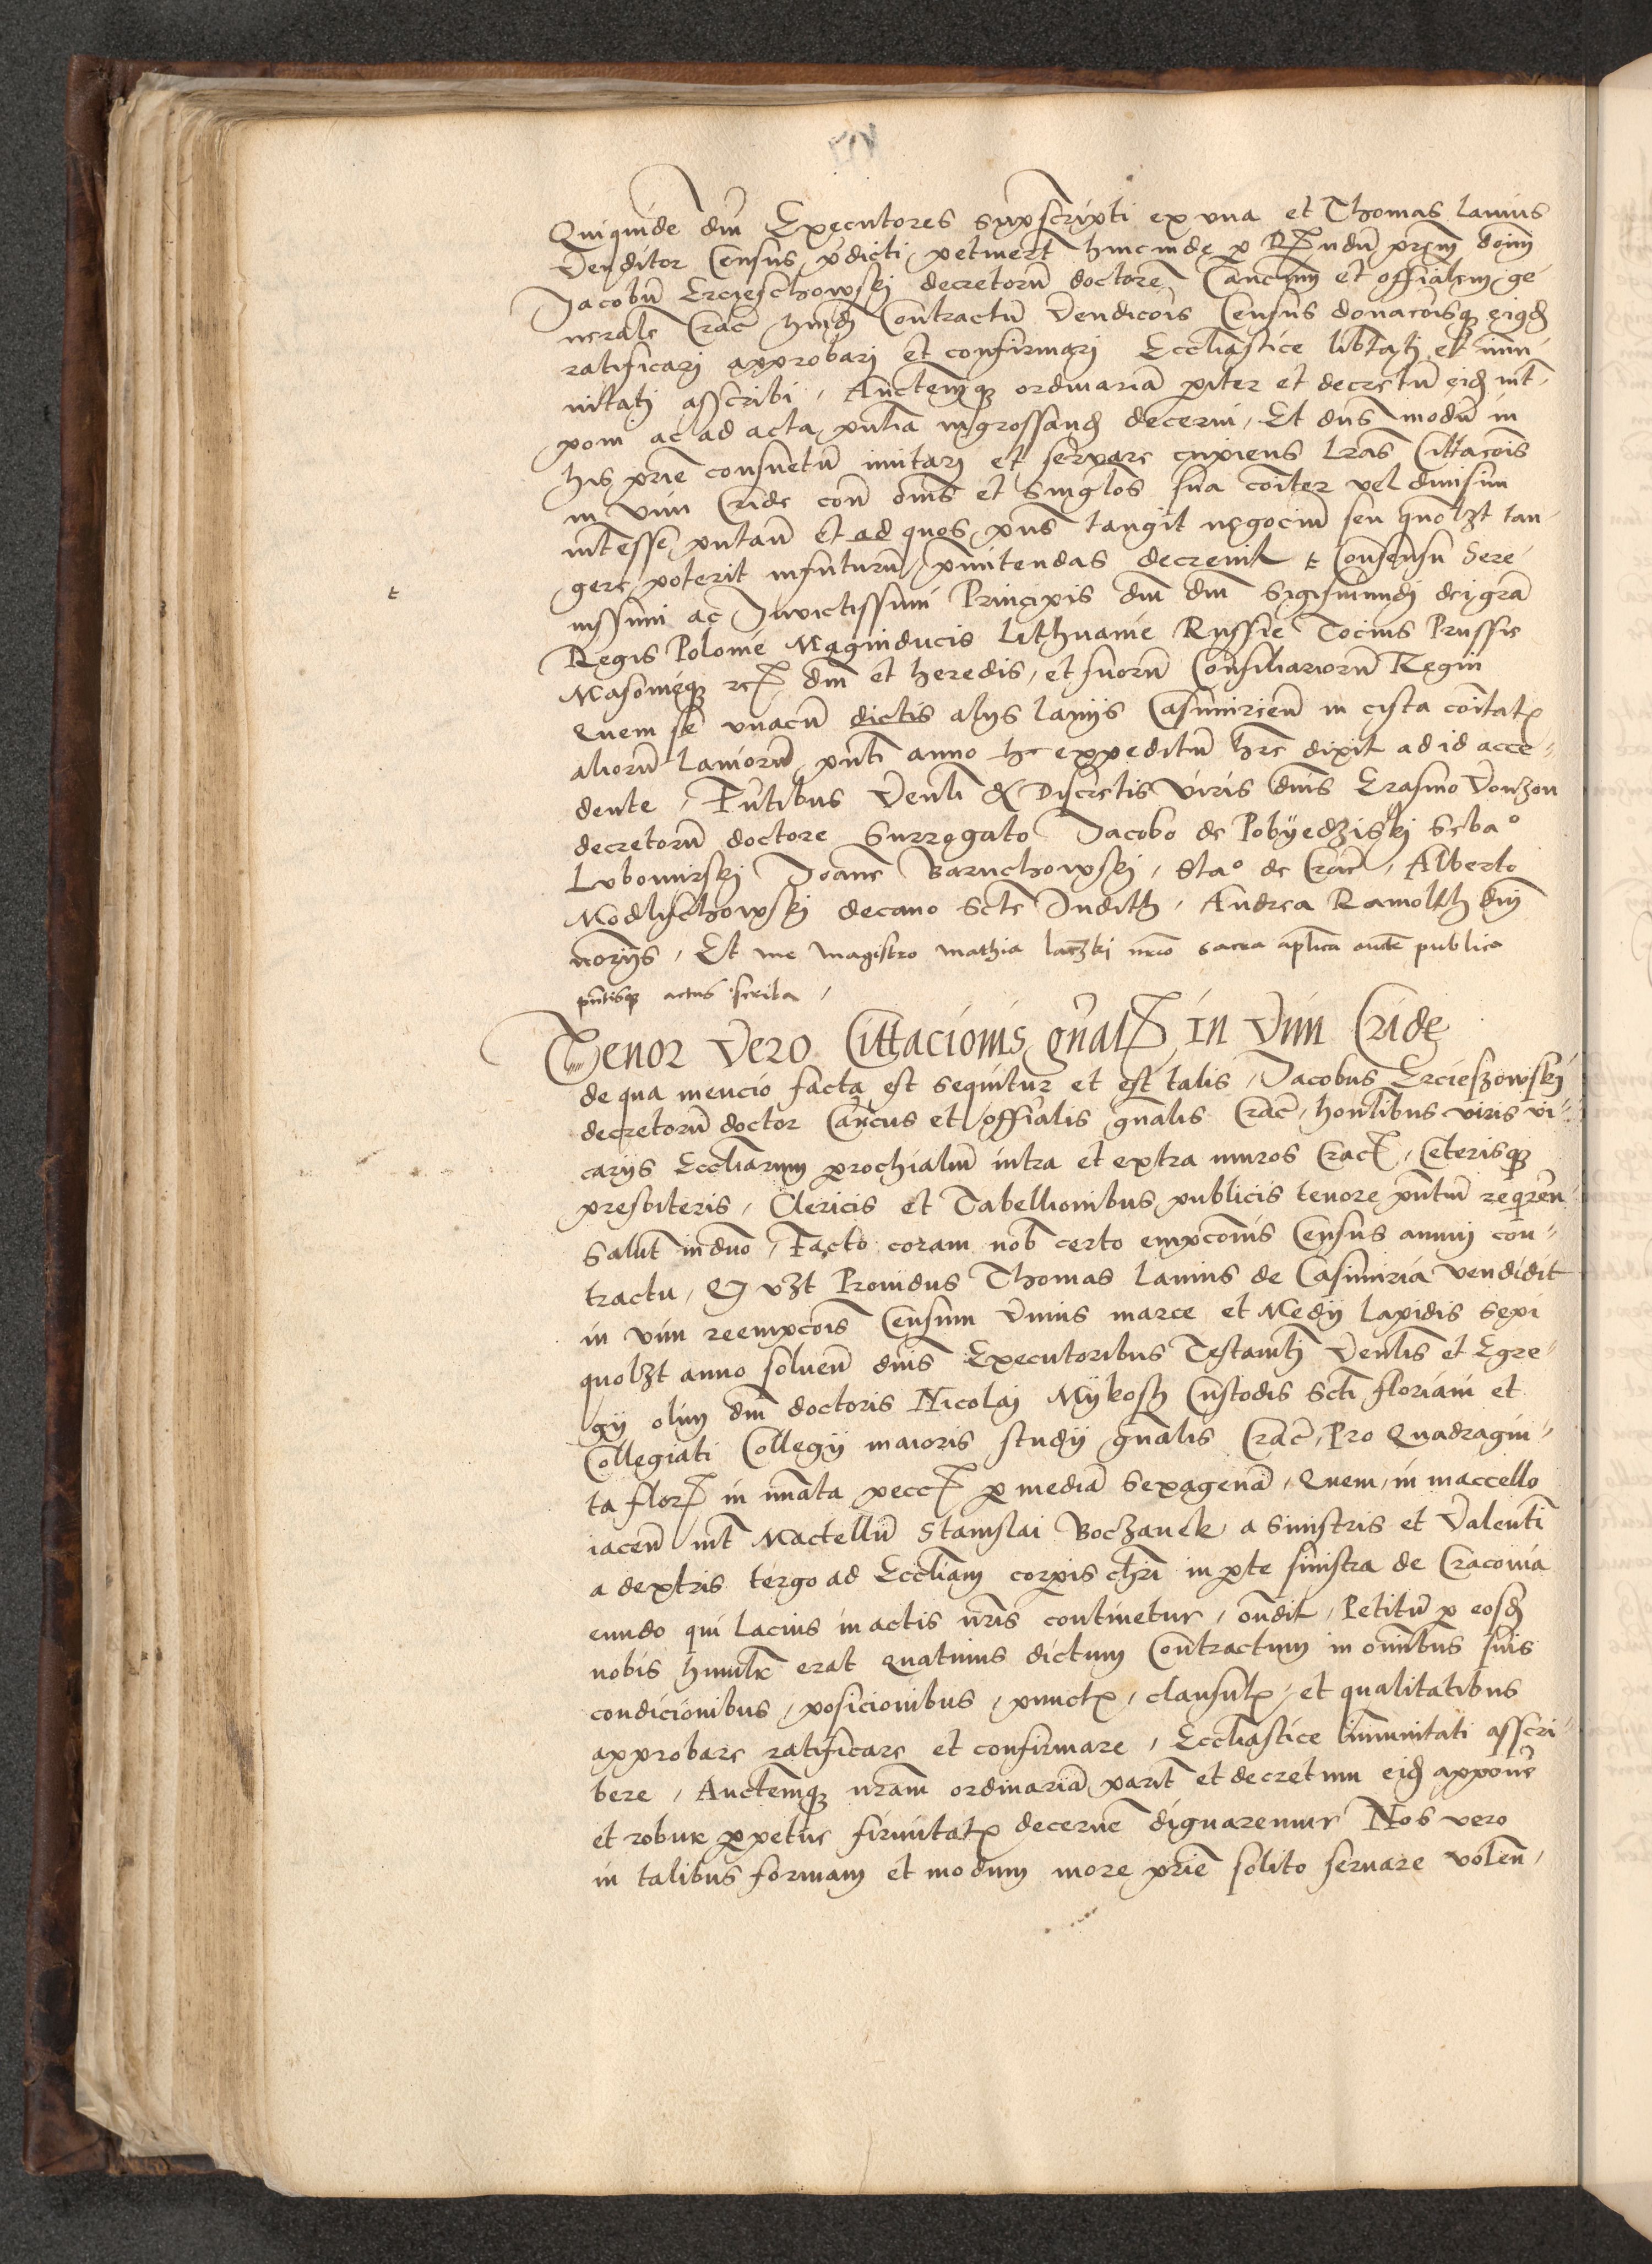 Quiquide dni Executores supscripti ex vna et Thomas lanius
Venditor Census pdicti petiuert hincinde p Rndu prem dnm
Jacobu Ercieschowskj decretoru doctore Cancriu et offialem ge-
nerale Crac hmdj Contractu Vendicois Census donacoisq eiusd
ratificarj approbarj et confirmarj Ecclastice libtatj et imu-
nitatj asscribi, Auctemq ordinaria piter et decretu eisd int-
poni ac ad acta pntia ingrossand decerni, Et dns modu in
his prie consuetu imitarj et seruare cupiens lras Cittacois
in vim Cride con oms et singlos sua coiter vel diuisim
intesse putan Et ad quos pns tangit negociu seu quolzt tan-
gere poterit infuturu, pmittendas decreuit t Consensu Sere-
nissimi ac Inuictissimi Principis dni dni Sigismundj dei gra
t
Regis Polonie Magniducis Lithuanie Russie Tocius Prussie
Masouieq rc dni et heredis, et suoru Consiliarioru Regni
Quem se vnacu dictis alys lanijs Casimirien in cista coitatis
alioru Lanioru pnti anno hc expeditu hre dixit ad id acce-
dente, Pntibus Venli & Discretis viris dnis Erasmo Vonzon
decretoru doctore Surrogato Jacobo de Pobyedziskj Seba°
Lubomirskj Joanne Baruchowskj, Sta° de Crac, Alberto
Modlischowskj decano Scte Judith, Andrea Ramolth dnj
norijs, Et me magistro mathia laczki nrio sacra aplica aucte publico
pntisq actus scriba,
Tenor Vero Cittacionis gnalis In Vim Cride
de qua mencio facta est sequitur et est talis, Jacobus Ercieszowskj
decretoru doctor Cancrius et offialis gnalis Crac, honlibus viris vi-
carijs Ecclarum prochialiu intra et extra muros Crac, Ceterisq
presbiteris, Clericis et Tabellionibus publicis tenore pntiu reqren
Salut in dno, Facto coram nob certo empconis Census annuj con-
tractu, Q vzt Prouidus Thomas lanius de Casimiria vendidit
in vim reempcois Censum Vnius marce et Medij lapidis sepi
quolzt anno soluen dnis Executoribus Testamtj Venlis et Egre-
gij olim dni doctoris Nicolaj Mykosz Custodis Scti floriani et
Collegiati Collegij maioris studij gnalis Crac, Pro Quadragin-
ta flor in mnata pecc p media Sexagena, Quem, in maccello
iacen int Mactellu Stanislai Boczanek a sinistris et Valenti
a dextris tergo ad Eccliam corpis chri in pte sinistra de Craconia
eundo qui lacius in actis nris continetur, ondit, Petitu p eosd
nobis humilr erat quatinus dictum Contractum in omibus suis
condicionibus, posicionibus, punctis, clausulis, et qualitatibus
approbare ratificare et confirmare, Ecclastice immunitati asscri-
bere, Auctemq nram ordinaria parit et decretum eisd appone
et robur ppetue firmitatis decerne dignaremur Nos vero
in talibus formam et modum more prie solito seruare volen,